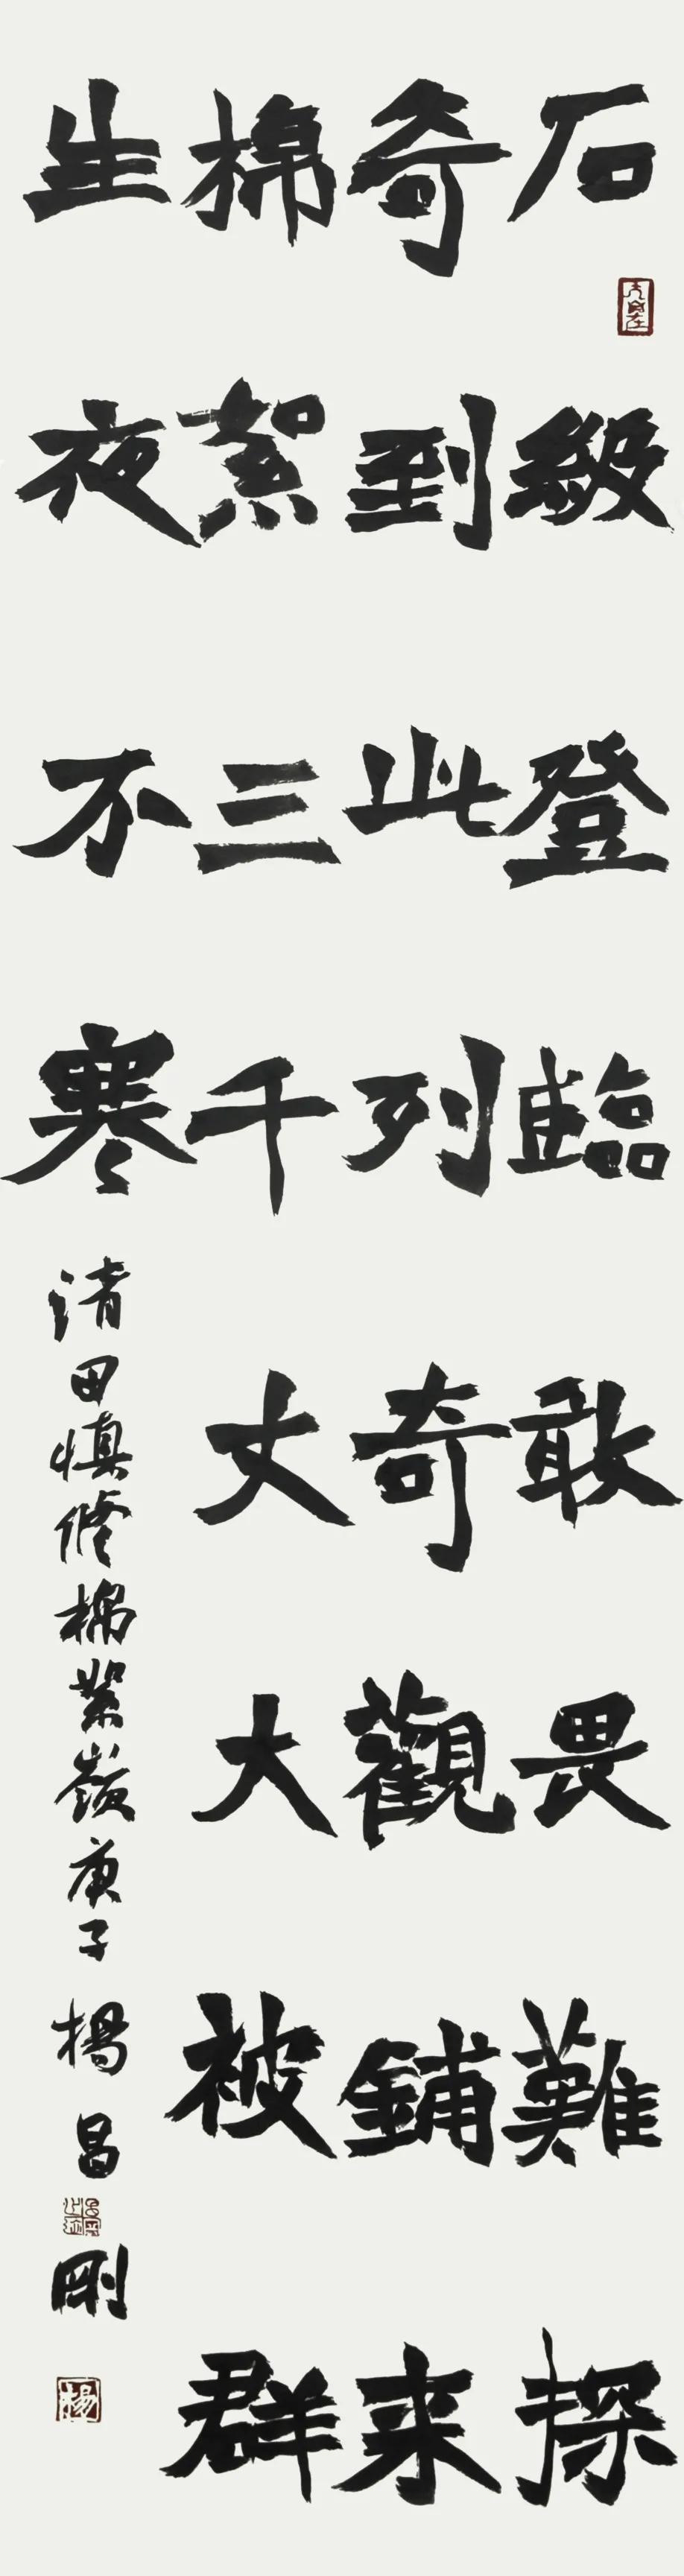 石級登臨敢畏難探
奇到此列奇觀鋪来
棉絮三千丈大被群
生夜不寒
清田慎修棉絮嶺庚子楊昌剛
楊